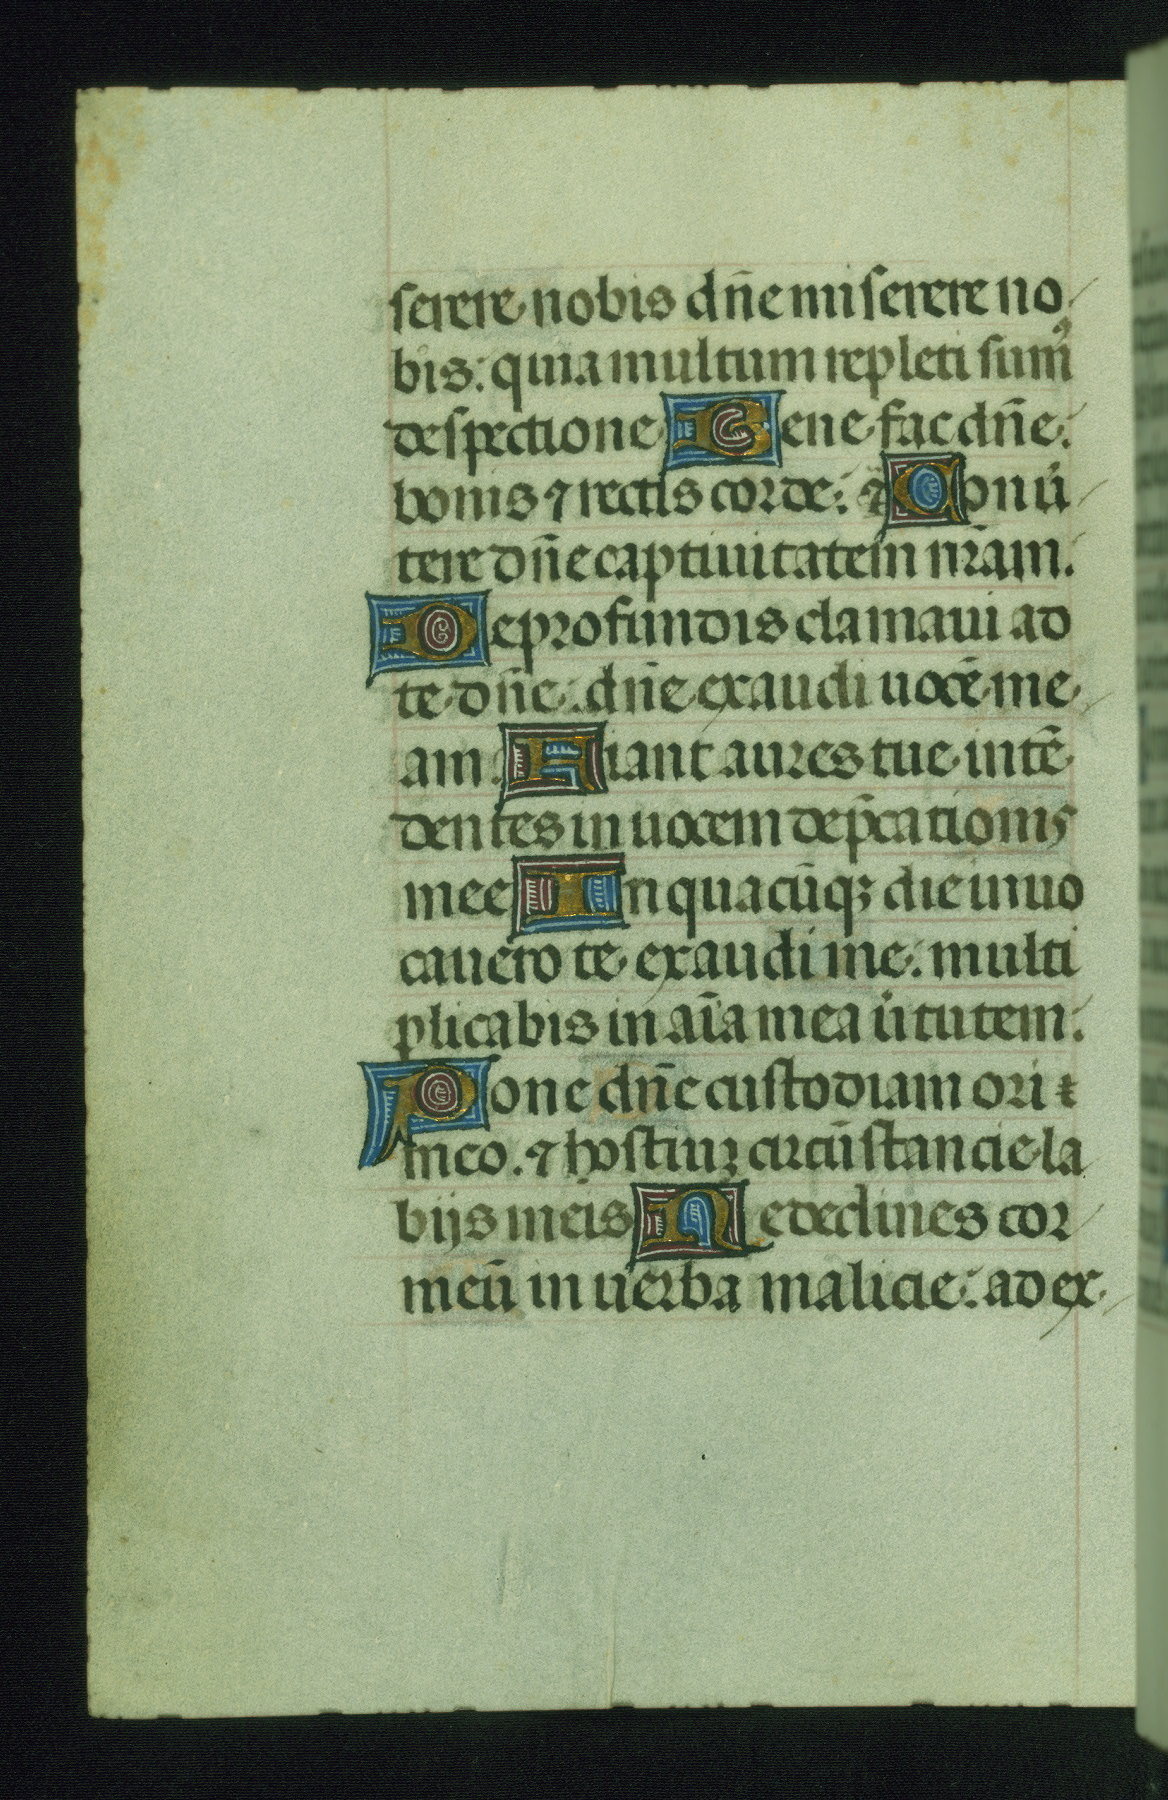 serere nobis dñe miserere no
bis: quia multum repleti sumꝰ
despectione Bene fac dñe:
bonis ⁊ rectis corde: Conũ
tere dñe captiuitatem nr̃am.
De profundis clamaui ad
te dñe: dñe exaudi uocẽ me
am. Fiant aures tue intẽ
dentes in uocem dep̃cationis
mee In quacũqꝫ die inuo
cauero te exaudi me: multi
plicabis in aĩa mea ũtutem:
Pone dñe custodiam ori
meo. ⁊ hostiuꝫ circũstancie la
bijs meis Ne declines cor
meũ in uerba malicie: ad ex